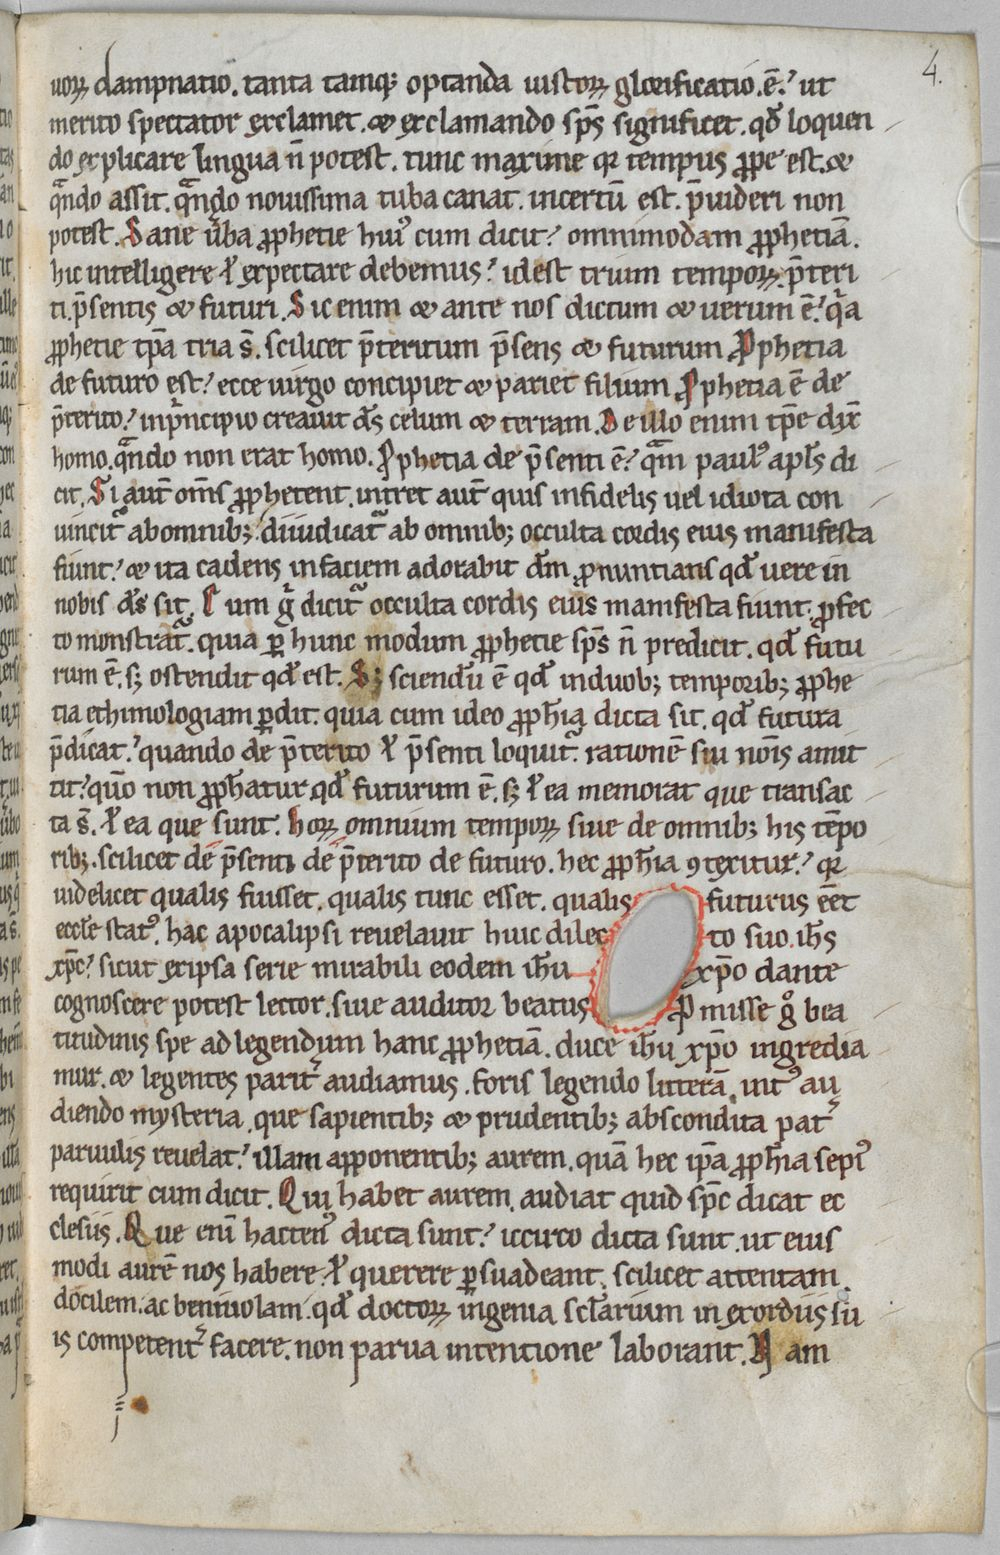 4.
uoꝝ dampnatio. tanta tamq; optanda iustoꝝ glorificatio. ē. ut
merito spectator exclamet. & exclamando sp̄s significet. qđ loquen
do explicare lingua n̄ potest. tunc maxime qꝛ tempus ꝓpe est. &
qᵃndo assit. qᵃndo nouissima tuba canat. incertū est. p̄uideri non
potest. Sane ūba ꝓphetie huiꝰ cum dicit? omnimodam ꝓphetiā.
hic intelligere ł expectare debemus? idest trium tempoꝝ. p̄teri
ti. p̄sentis & futuri. Sic enim & ante nos dictum & uerum ē? qᵃa
ꝓphetie tp̄a tria s̄. scilicet p̄teritum p̄sens & futurum Ꝓphetia
de futuro est? ecce uirgo concipiet & pariet filium Ꝓphetia ē de
p̄terito? inpⁱncipio creauit d̄s celum & terram. De illo enim tp̄e dix̄
homo. qᵃndo non erat homo. Ꝓphetia de p̄senti ē? qᵃm paulꝰ apl̄s di
cit. Si aut̄ om̄s ꝓphetent. intret aut̄ quis infidelis uel idiota con
uincit᷑ abomnib; diiudicat᷑ ab omnib; occulta cordis eius manifesta
fiunt? & ita cadens infaciem adorabit d̄m ꝓnuntians qđ uere in
nobis d̄s sit. Cum gͥ dicit᷑ occulta cordis eius manifesta fiunt. ꝓfec
to monstrat᷑. quia ꝑ hunc modum ꝓphetie sp̄s n̄ predicit. qđ futu
rum ē. s; ostendit qđ est. S; sciendū ē qđ induob; temporib; ꝓphe
tia ethimologiam ꝑdit. quia cum ideo ꝓph̄ia dicta sit. qđ futura
p̄dicat? quando de p̄terito ł p̄senti loquit᷑. rationē sui nōis amit
tit? qūo non ꝓph̄atur. qđ futurum ē. s; ł ea memorat que transac
ta s̄. ł ea que sunt. hoꝝ omnium tempoꝝ siue de omnib; his tēpo
rib;. scilicet de p̄senti de p̄terito de futuro. hec ꝓph̄ia ꝯtexitur? qꝛ
uidelicet qualis fuisset. qualis tunc esset. qualis futurus eēt
eccl̄e statꝰ. hac apocalipsi reuelauit huic dilec to suo. ih̄s
xp̄c? sicut exipsa serie mirabili eodem ih̄u xp̄o dante
cognoscere potest lector. siue auditor beatus Ꝓmisse gͦ bea
titudinis spe ad legendum hanc ꝓphetiā. duce ih̄u xp̄o ingredia
mur. & legentes parit᷑ audiamus. foris legendo litterā. intꝰ au
diendo mysteria. que sapientib; & prudentib; abscondita pat᷑
paruulis reuelat? illam apponentib; aurem. quā hec ip̄a ꝓph̄ia sepi᷑
requirit cum dicit. Qui habet aurem. audiat quid sp̄c dicat ec
clesiis. Que eni᷑ hactenꝰ dicta sunt? iccirco dicta sunt. ut eius
modi aurē nos habere ł querere ꝑsuadeant. scilicet attentam.
docilem. ac beniuolam. qđ doctoꝝ ingenia scl̄arium in exordiis su
is competent᷑ facere. non parua intentione laborant. Nam